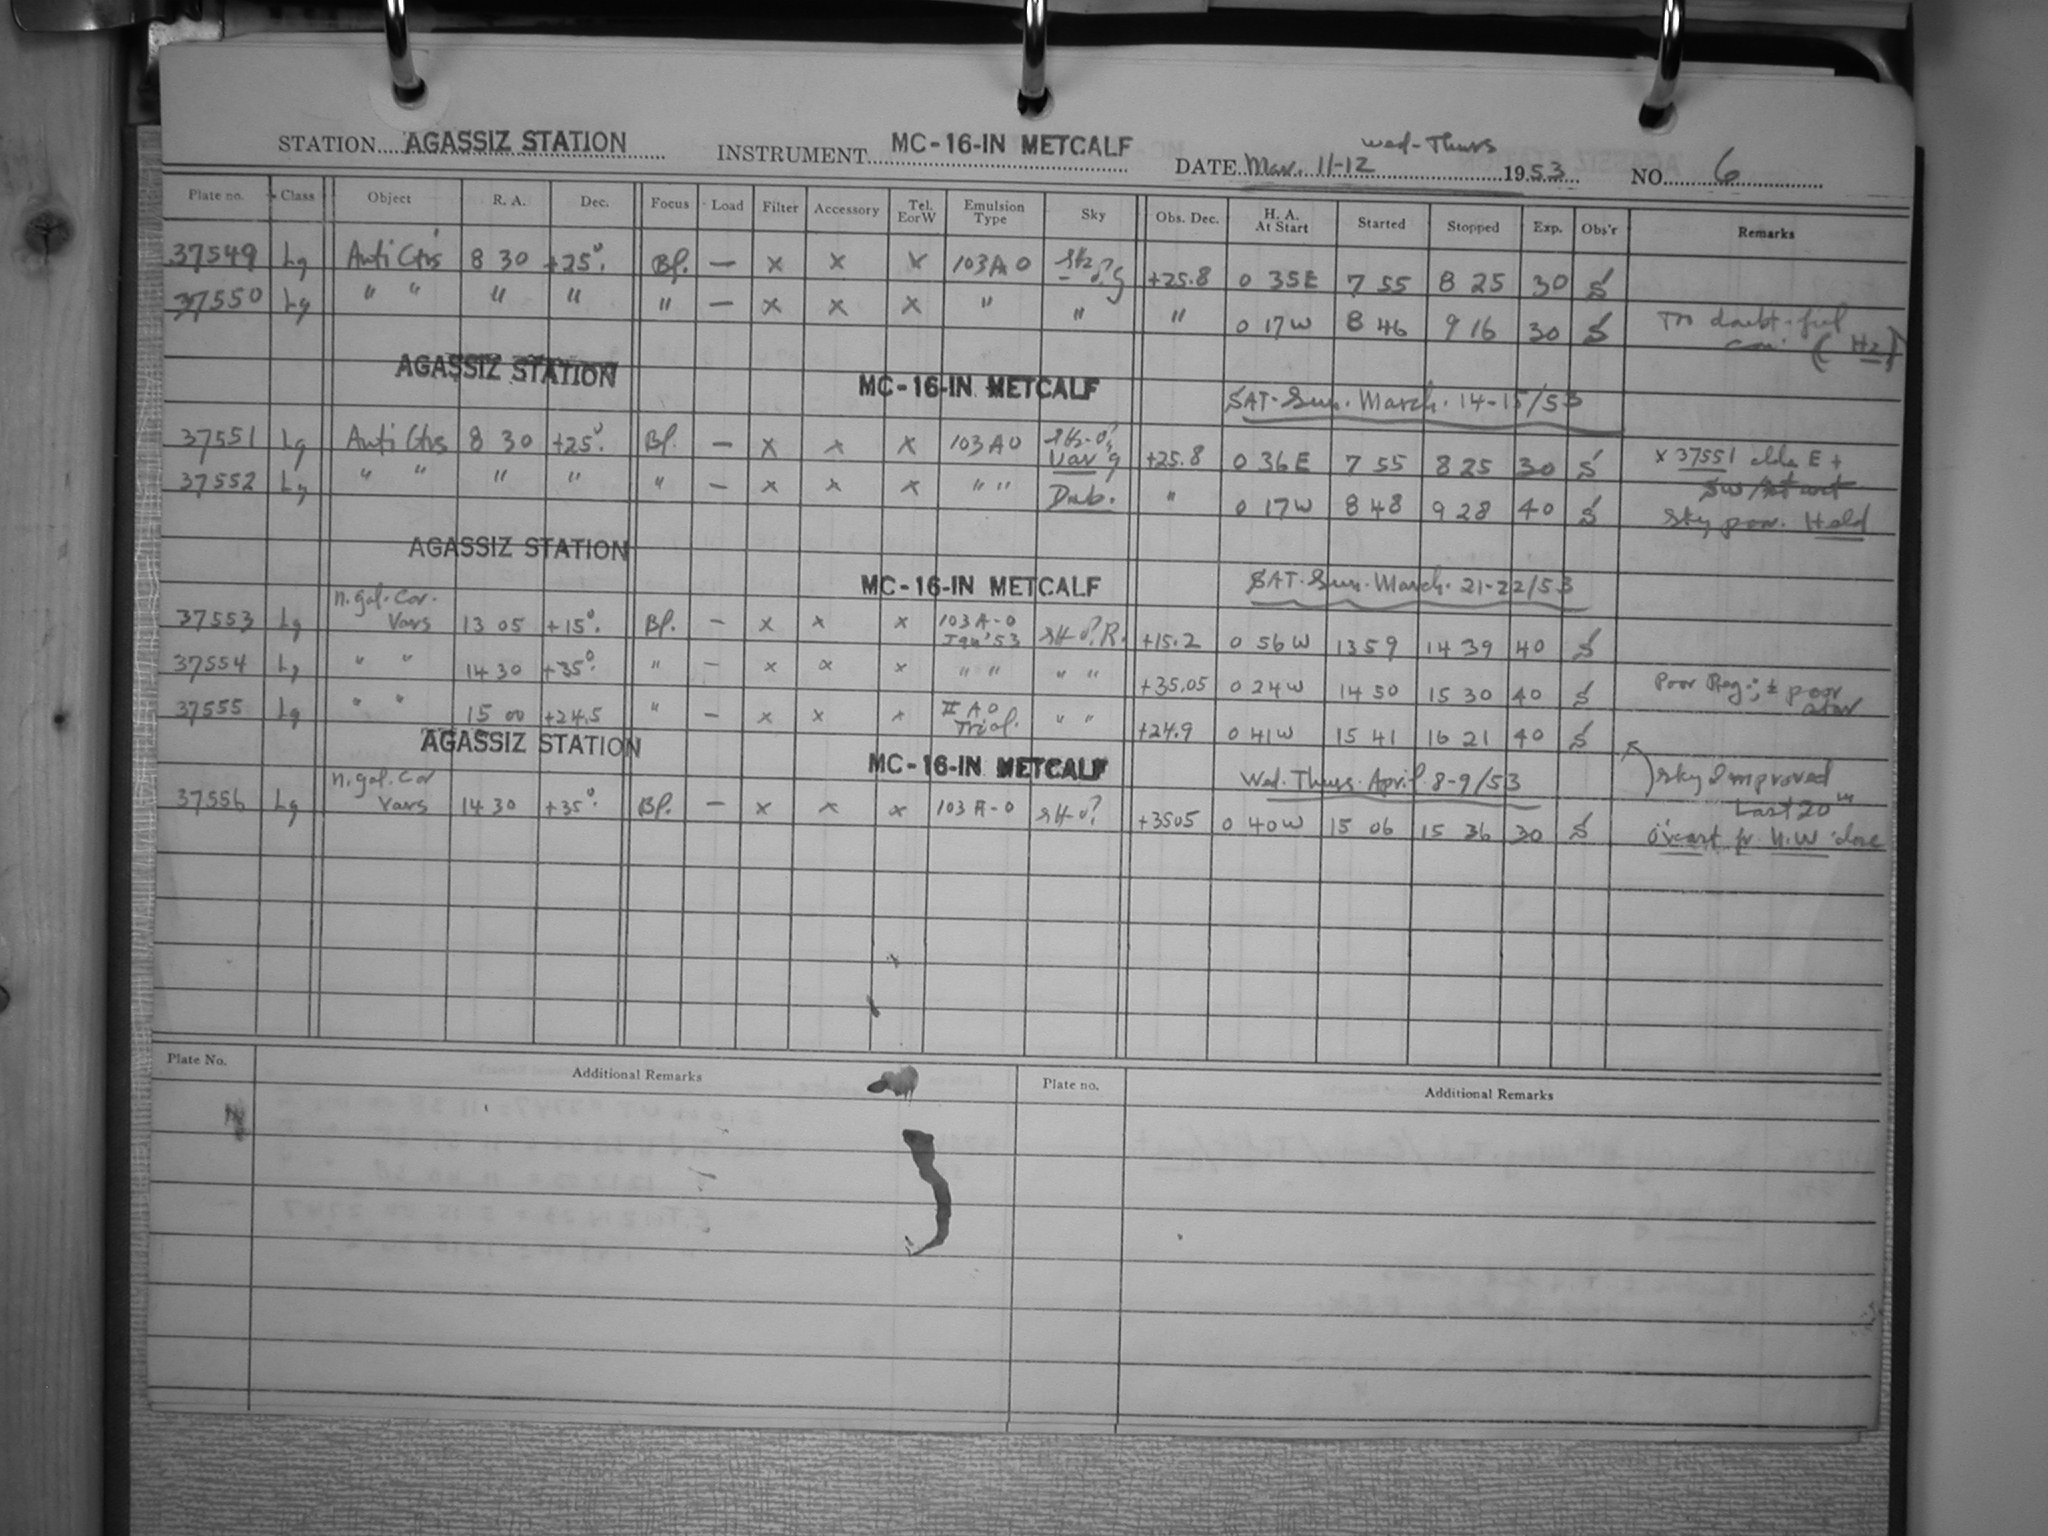 STATION AGASSIZ STATION INSTRUMENT MC-16-IN METCALF DATE Mar. 11-12 Wed-Thurs 1953 NO. 6
Plate no. Class Object R. A. Dec. Focus Load Filter Accessory Tel. E or W Emulsion Type Sky Obs. Dec. H. A. At Start Started Stopped Exp. Obs'r Remarks
37549 Lg Anti Ctrs 8 30 +25°. Bf. — x x x 103A0 +25.8 0 35E 7 55 8 25 30 S
37550 Lg " " " " " — x x x " " " 0 17W 8 46 9 16 30 S doubt-ful
AGASSIZ STATION MC-16-IN METCALF SAT-Sun. March. 14-15/53
37551 Lg Anti Ctrs 8 30 +25°. Bf. — x x x 103A0 Var +25.8 0 36E 7 55 8 25 30 S x 37551 clds E +
37552 Lg " " " " " — x x x " " " 0 17W 8 48 9 28 40 S Sky poor. Held
AGASSIZ STATION MC-16-IN METCALF SAT-Sun. March. 21-22/53
37553 Lg n. gal. Car. Vars 13 05 +15°. Bf. — x x x 103A-0 Jan '53 +15.2 0 56W 13 59 14 39 40 S
37554 Lg " " 14 30 +35°. " — x x x " " " " +35.05 0 24W 14 50 15 30 40 S Poor Reg.; poor
37555 Lg " " 15 00 +24.5 " — x x x II A0 Trial. " " +24.9 0 41W 15 41 16 21 40 S
AGASSIZ STATION MC-16-IN METCALF Wed. Thurs. April. 8-9/53 Sky improved Last 20 m
37556 Lg n. gal. Car Vars 14 30 +35°. Bf. — x x x 103A-0 +3505 0 40W 15 06 15 36 30 S o'cast fr. N.W close
Plate No. Additional Remarks Plate no. Additional Remarks